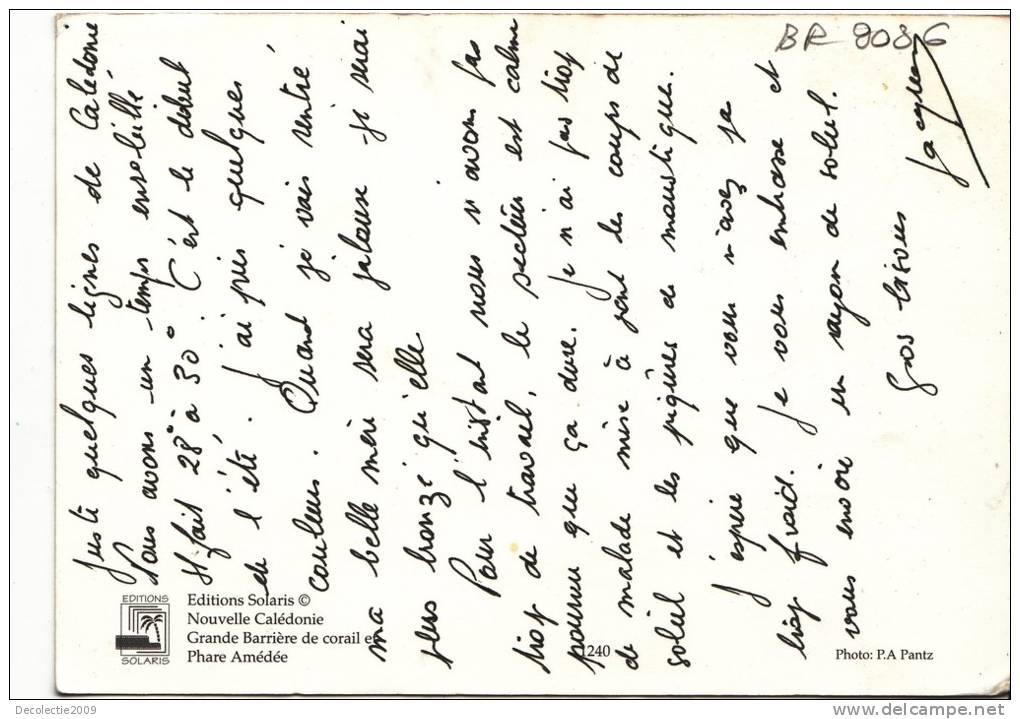 Juste quelques lignes de Calédonie
Nous avons un temps ensoleillé
Il fait 28° à 30°. C'est le début
de l'été. J'ai pris quelques
couleurs. Quand je vais rentré
ma belle mère sera jalouse je serai
plus bronzé qu'elle
Pour l'instant nous n'avons pas
trop de travail, le secteur est calme
pourvu que ça dure. Je n'ai pas trop
de malade mise à part les coups de
soleil et les piqûres de moustique.
J'espère que vous n'avez pas
trop froid. Je vous embrasse et
vous envoie un rayon de soleil.
Gros bisous
BR 8086
EDITIONS
SOLARIS
Editions Solaris ©
Nouvelle Calédonie
Grande Barrière de corail et
Phare Amédée
1240
Photo: P.A Pantz
Decolectie2009
www.delcampe.net